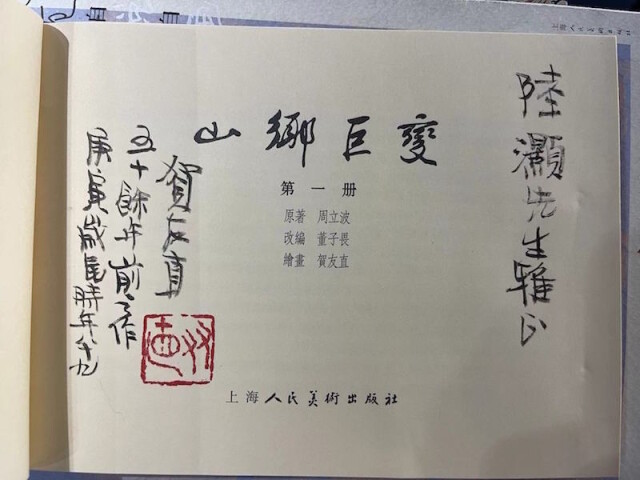 陸灝先生雅正
山鄉巨變
第一册
原著 周立波
改編 董子畏
繪畫 賀友直
上海人民美術出版社
賀友直
五十餘年前之作
庚寅歲尾時年八十九